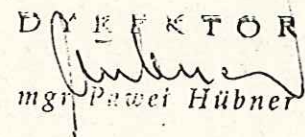 DYREKTOR
mgr Paweł Hübner